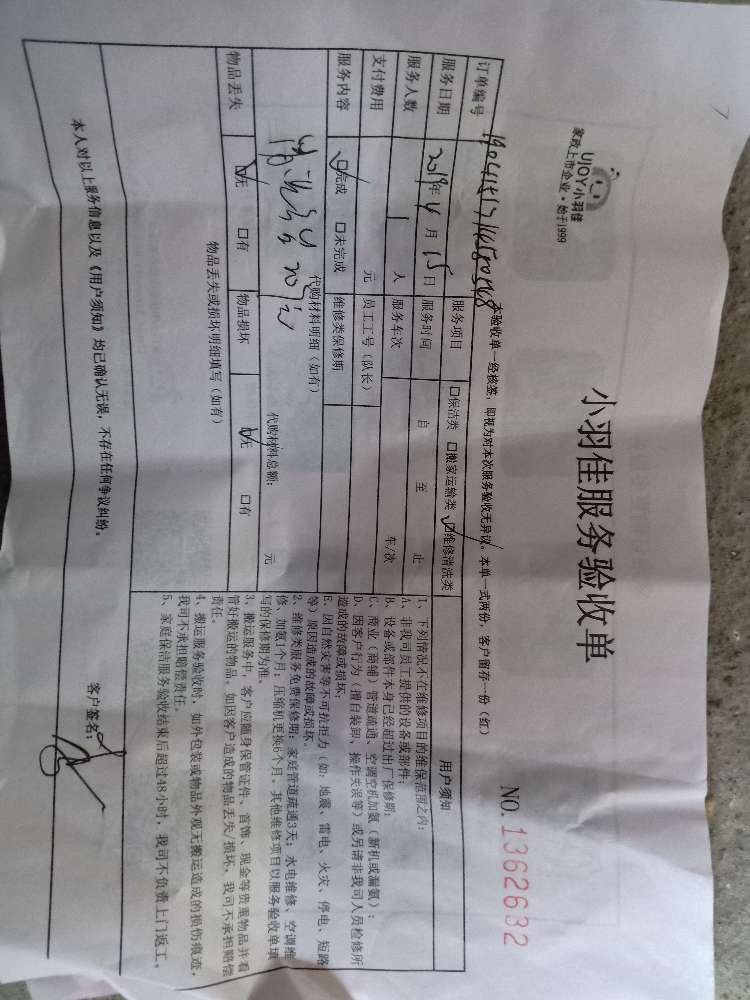 UJOY小羽佳
家政上市企业·始于1999
小羽佳服务验收单
NO.1362632
本验收单一经核签，即视为对本次服务验收无异议。本单一式两份，客户留存一份（红）
订单编号
服务项目 □保洁类 □搬家运输类 ☑维修清洗类
服务日期 2019年4月15日 服务时间 自 至 止
服务人数 1人 服务车次 车/次
支付费用 元 员工工号（队长）
服务内容 ☑完成 □未完成 维修类保修期
代购材料明细（如有）
代购材料总额： 元
物品丢失 ☑无 □有 物品损坏 ☑无 □有
物品丢失或损坏明细填写（如有）
用户须知
1、下列情况不在维修项目的维保范围之内：
A、非我司员工提供的设备或部件；
B、设备或部件本身已经超过出厂保修期；
C、商业（商铺）管道疏通、空调空机加氨（新机或漏氨）；
D、因客户行为（擅自装卸、操作失误等）或另请非我司人员检修所
造成的故障或损坏；
E、因自然灾害等不可抗拒力（如：地震、雷电、火灾、停电、短路
等）原因造成的故障或损坏。
2、维修类服务免费保修期：家庭管道疏通3天；水电维修、空调维
修、加氨1个月；压缩机更换6个月，其他维修项目以服务验收单填
写的保修期为准。
3、搬运服务中，客户应随身保管证件、首饰、现金等贵重物品并看
管好搬运的物品，如因客户造成的物品丢失/损坏，我司不承担赔偿
责任。
4、搬运服务验收时，如外包装或物品外观无搬运造成的损伤痕迹，
我司不承担赔偿责任。
5、家庭保洁服务验收结束后超过48小时，我司不负责上门返工。
本人对以上服务信息以及《用户须知》均已确认无误，不存在任何争议纠纷。
客户签名：